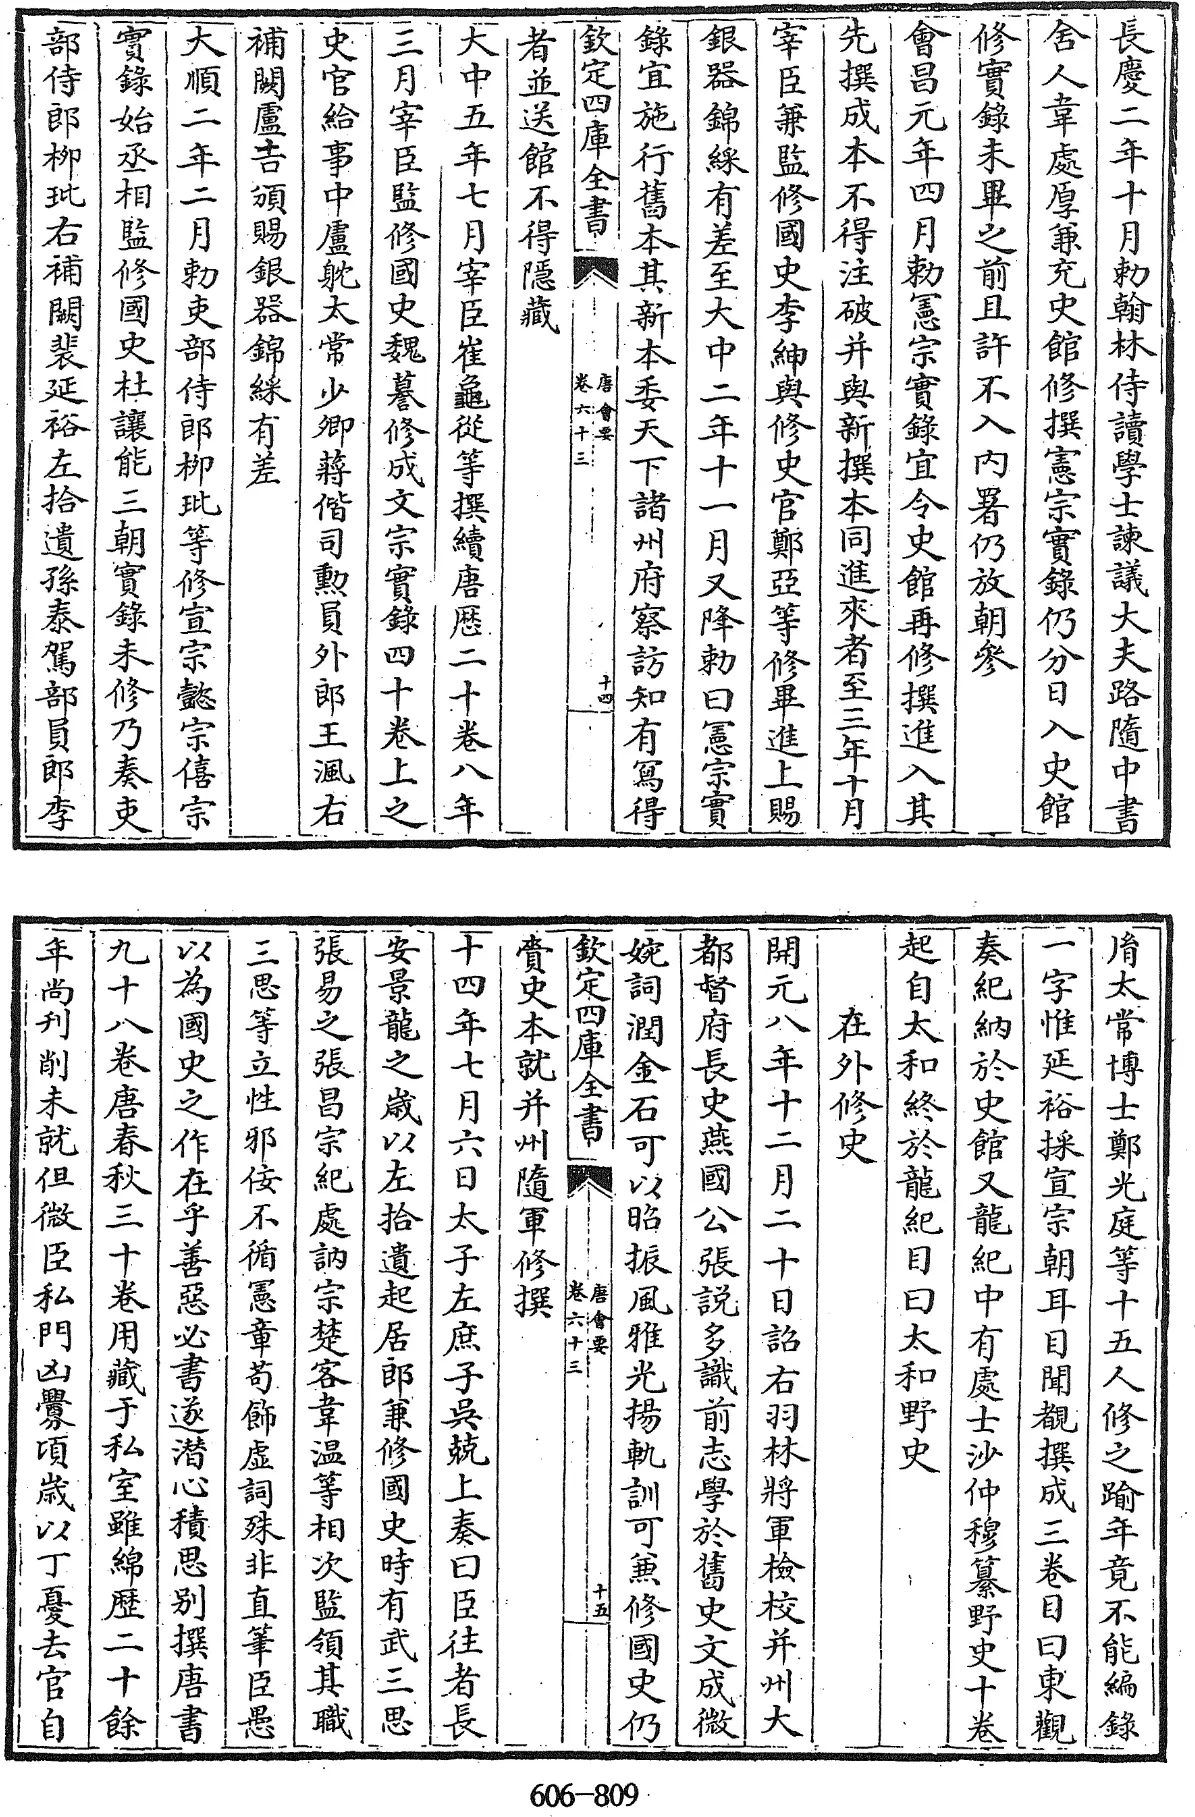 長慶二年十月勅翰林侍讀學士諫議大夫路隨中書
舍人韋處厚兼充史館修撰憲宗實錄仍分日入史館
修實錄未畢之前且許不入內署仍放朝參
會昌元年四月勅憲宗實錄宜令史館再修撰進入其
先撰成本不得注破并與新撰本同進來者至三年十月
宰臣兼監修國史李紳與修史官鄭亞等修畢進上賜
銀器錦綵有差至大中二年十一月又降勅曰憲宗實
錄宜施行舊本其新本委天下諸州府察訪知有寫得
欽定四庫全書
唐會要
卷六十三
十四
者並送館不得隱藏
大中五年七月宰臣崔龜從等撰續唐歷二十卷八年
三月宰臣監修國史魏謩修成文宗實錄四十卷上之
史官給事中盧躭太常少卿蔣偕司勳員外郎王渢右
補闕盧吉頒賜銀器錦綵有差
大順二年二月勅吏部侍郎柳玭等修宣宗懿宗僖宗
實錄始丞相監修國史杜讓能三朝實錄未修乃奏吏
部侍郎柳玭右補闕裴延裕左拾遺孫泰駕部員郎李
胤太常博士鄭光庭等十五人修之踰年竟不能編錄
一字惟延裕採宣宗朝耳目聞覩撰成三卷目曰東觀
奏紀納於史館又龍紀中有處士沙仲穆纂野史十卷
起自太和終於龍紀目曰太和野史
在外修史
開元八年十二月二十日詔右羽林將軍檢校并州大
都督府長史燕國公張說多識前志學於舊史文成微
婉詞潤金石可以昭振風雅光揚軌訓可兼修國史仍
欽定四庫全書
唐會要
卷六十三
十五
賷史本就并州隨軍修撰
十四年七月六日太子左庶子吳兢上奏曰臣往者長
安景龍之歲以左拾遺起居郎兼修國史時有武三思
張易之張昌宗紀處訥宗楚客韋温等相次監領其職
三思等立性邪佞不循憲章苟飾虛詞殊非直筆臣愚
以為國史之作在乎善惡必書遂潛心積思別撰唐書
九十八卷唐春秋三十卷用藏于私室雖綿歷二十餘
年尚刊削未就但微臣私門凶釁頃歲以丁憂去官自
606-809